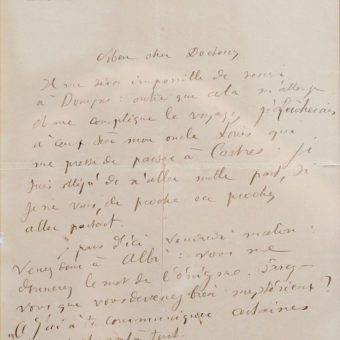 Mon cher Docteur
Il me sera impossible de venir
à : outre que cela m'allonge
et me complique le voyage, je fâcherais
à coup sûr mon oncle Louis qui
me presse de passer à Castres : je
suis obligé de n'aller nulle part, si
je ne veux, de proche en proche,
aller partout.
Je pars d'ici vendredi matin :
Venez donc à Albi : vous me
donnerez le mot de l'énigme.
vous que vous devenez bien mystérieux ?
"J'ai à te communiquer certaines
tout